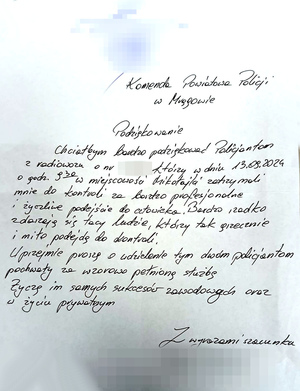 Komenda Powiatowa Policji
w Mrągowie
Podziękowanie
Chciałbym bardzo podziękować Policjantom
z radiowozu o nr którzy w dniu 13.09.2024
o godz. 9:30 w miejscowości Mikołajki zatrzymali
mnie do kontroli za bardzo profesjonalne
i życzliwe podejście do człowieka. Bardzo rzadko
zdarzają się tacy ludzie, którzy tak grzecznie
i miło podejdą do kontroli.
Uprzejmie proszę o udzielenie tym dwóm policjantom
pochwały za wzorowo pełnioną służbę
Życzę im samych sukcesów zawodowych oraz
w życiu prywatnym
Z wyrazami szacunku